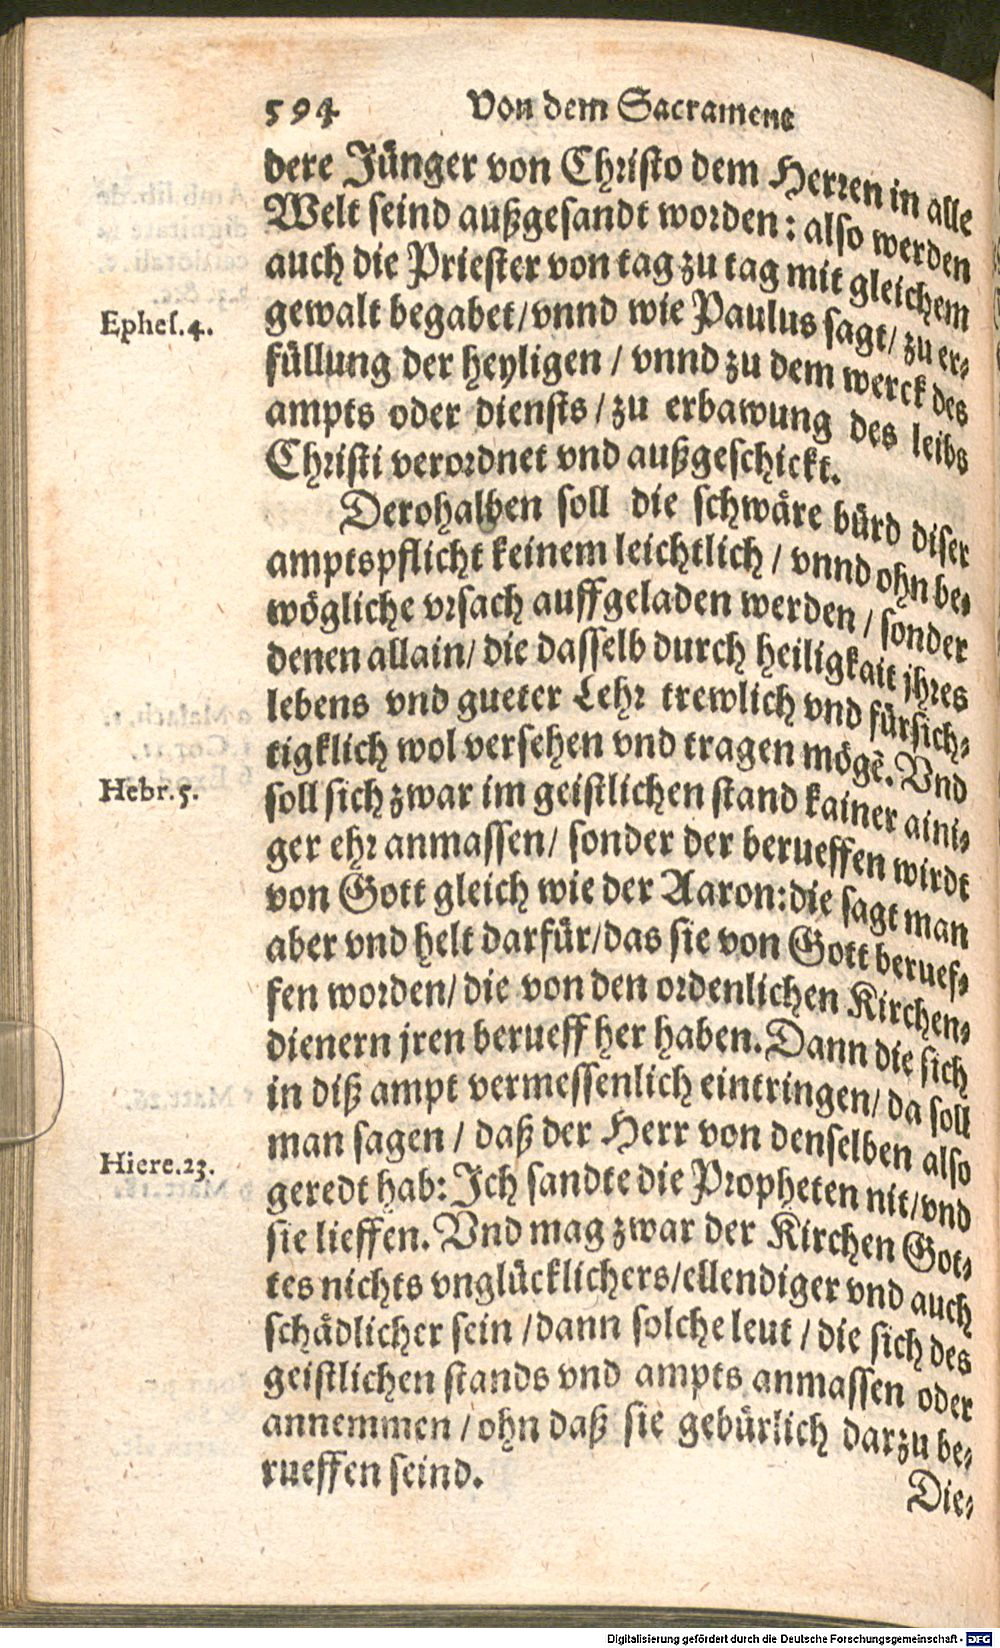 594 Von dem Sacrament
dere Jünger von Christo dem Herren in alle
Welt seind außgesandt worden: also werden
auch die Priester von tag zu tag mit gleichem
Ephes.4.
gewalt begabet/vnnd wie Paulus sagt/ zu er-
füllung der heyligen / vnnd zu dem werck des
ampts oder diensts/zu erbawung des leibs
Christi verordnet vnd außgeschickt.
Derohalben soll die schwäre bürd diser
amptspflicht keinem leichtlich / vnnd ohn be-
wögliche vrsach auffgeladen werden / sonder
denen allain/ die dasselb durch heiligkait jhres
lebens vnd gueter Lehr trewlich vnd fürsich-
tigklich wol versehen vnd tragen mögē. Vnd
Hebr.5.
soll sich zwar im geistlichen stand kainer aini-
ger ehr anmassen/ sonder der berueffen wirdt
von Gott gleich wie der Aaron:die sagt man
aber vnd helt darfür/das sie von Gott beruef-
fen worden/ die von den ordenlichen Kirchen-
dienern jren berueff her haben. Dann die sich
in diß ampt vermessenlich eintringen/ da soll
man sagen / daß der Herr von denselben also
Hiere.23.
geredt hab: Ich sandte die Propheten nit/vnd
sie lieffen. Vnd mag zwar der Kirchen Got-
tes nichts vnglücklichers/ellendiger vnd auch
schädlicher sein /dann solche leut / die sich des
geistlichen stands vnd ampts anmassen oder
annemmen / ohn daß sie gebürlich darzu be-
rueffen seind.
Die-
Digitalisierung gefördert durch die Deutsche Forschungsgemeinschaft - DFG